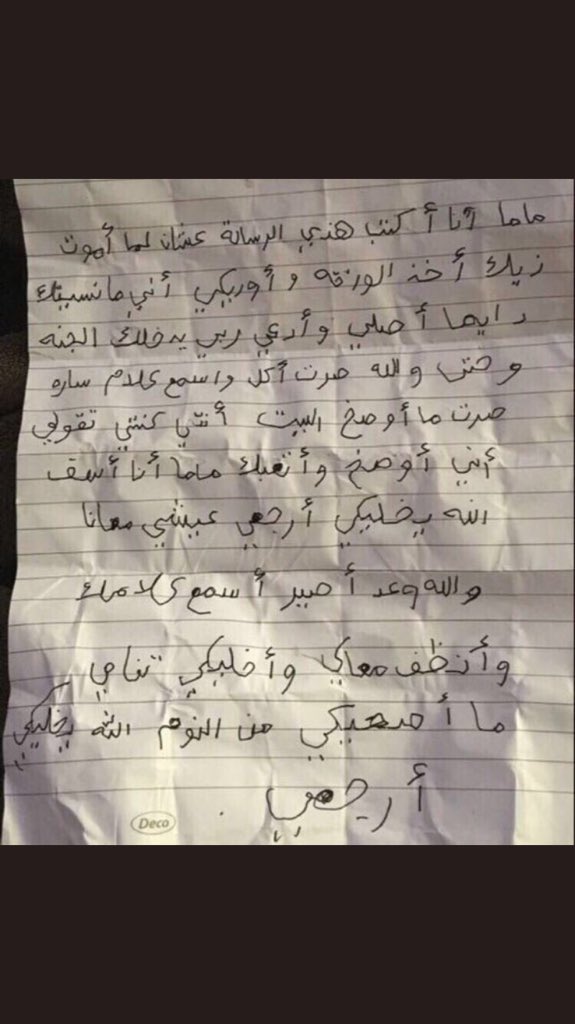 ماما أنا أكتب هذي الرسالة عشان لما أموت
زيك أخذ الورقه وأوريكي أني مانسيتك
دايما أصلي وأدعي ربي يدخلك الجنه
وحتى والله صرت أكل واسمع كلام ساره
صرت ما أوصخ البيت أنتي كنتي تقولي
أني أوصخ وأتعبك ماما أنا أسف
الله يخليكي أرجعي عيشي معانا
والله وعد أصير أسمع كلامك
وأنظف معاكي وأخليكي تنامي
ما أصحيكي من النوم الله يخليكي
أرجعي
Deco